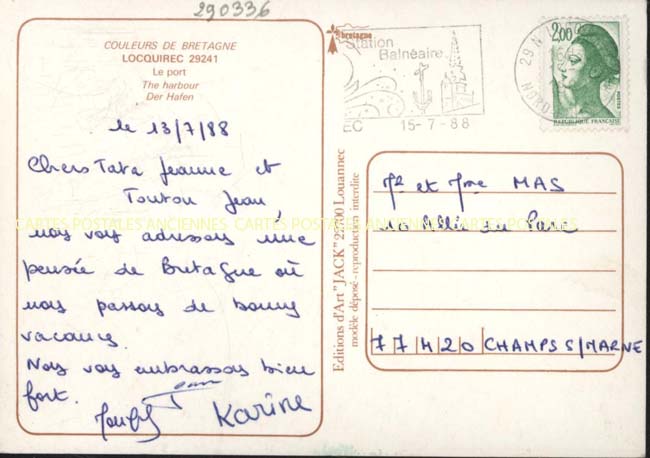 290336
COULEURS DE BRETAGNE
LOCQUIREC 29241
Le port
The harbour
Der Hafen
le 13/7/88
Chers Tata Jeanne et
Tonton Jean,
nous vous adressons une
pensée de Bretagne où
nous passons de bonnes
vacances.
Nous vous embrassons bien
fort.
Karine
Editions d'Art "JACK" 22700 Louannec
modèle déposé - reproduction interdite
bretagne
Station
Balnéaire
EC 15-7-88
29 N
2,00
POSTES
REPUBLIQUE FRANÇAISE
Mr et Mme MAS
10 Allée du Parc
77420 CHAMPS S/MARNE
CARTES POSTALES ANCIENNES CARTES POSTALES ANCIENNES CARTES POSTALES ANCIENNES